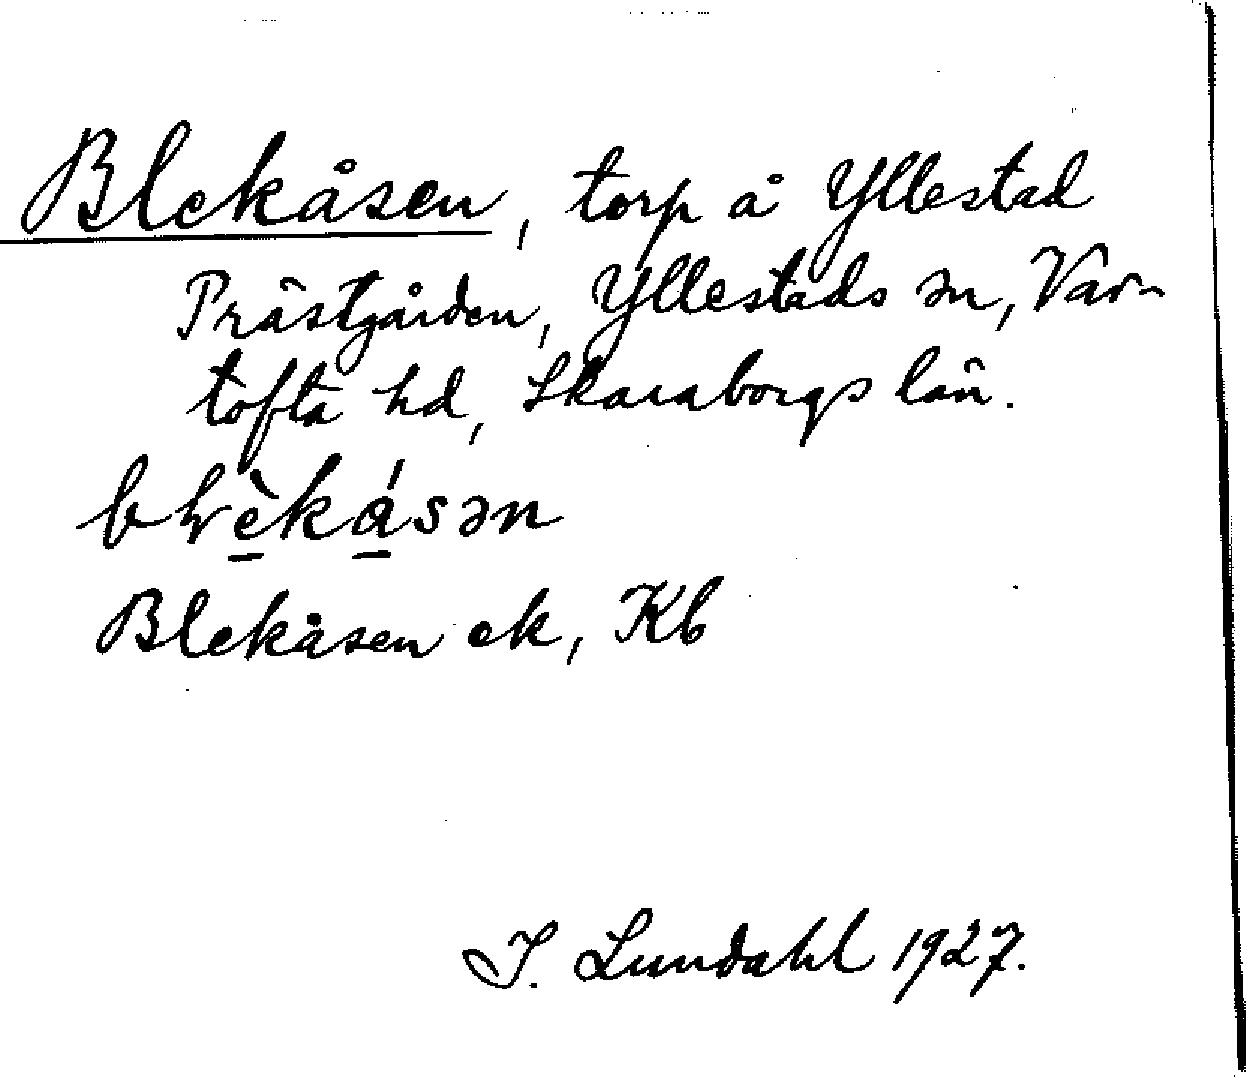 Blekåsen, torp å Yllestad
Prästgården, Yllestads sn, Var-
tofta hd, Skaraborgs län.
Blekåsen ek, Kb
I. Lundahl 1927.